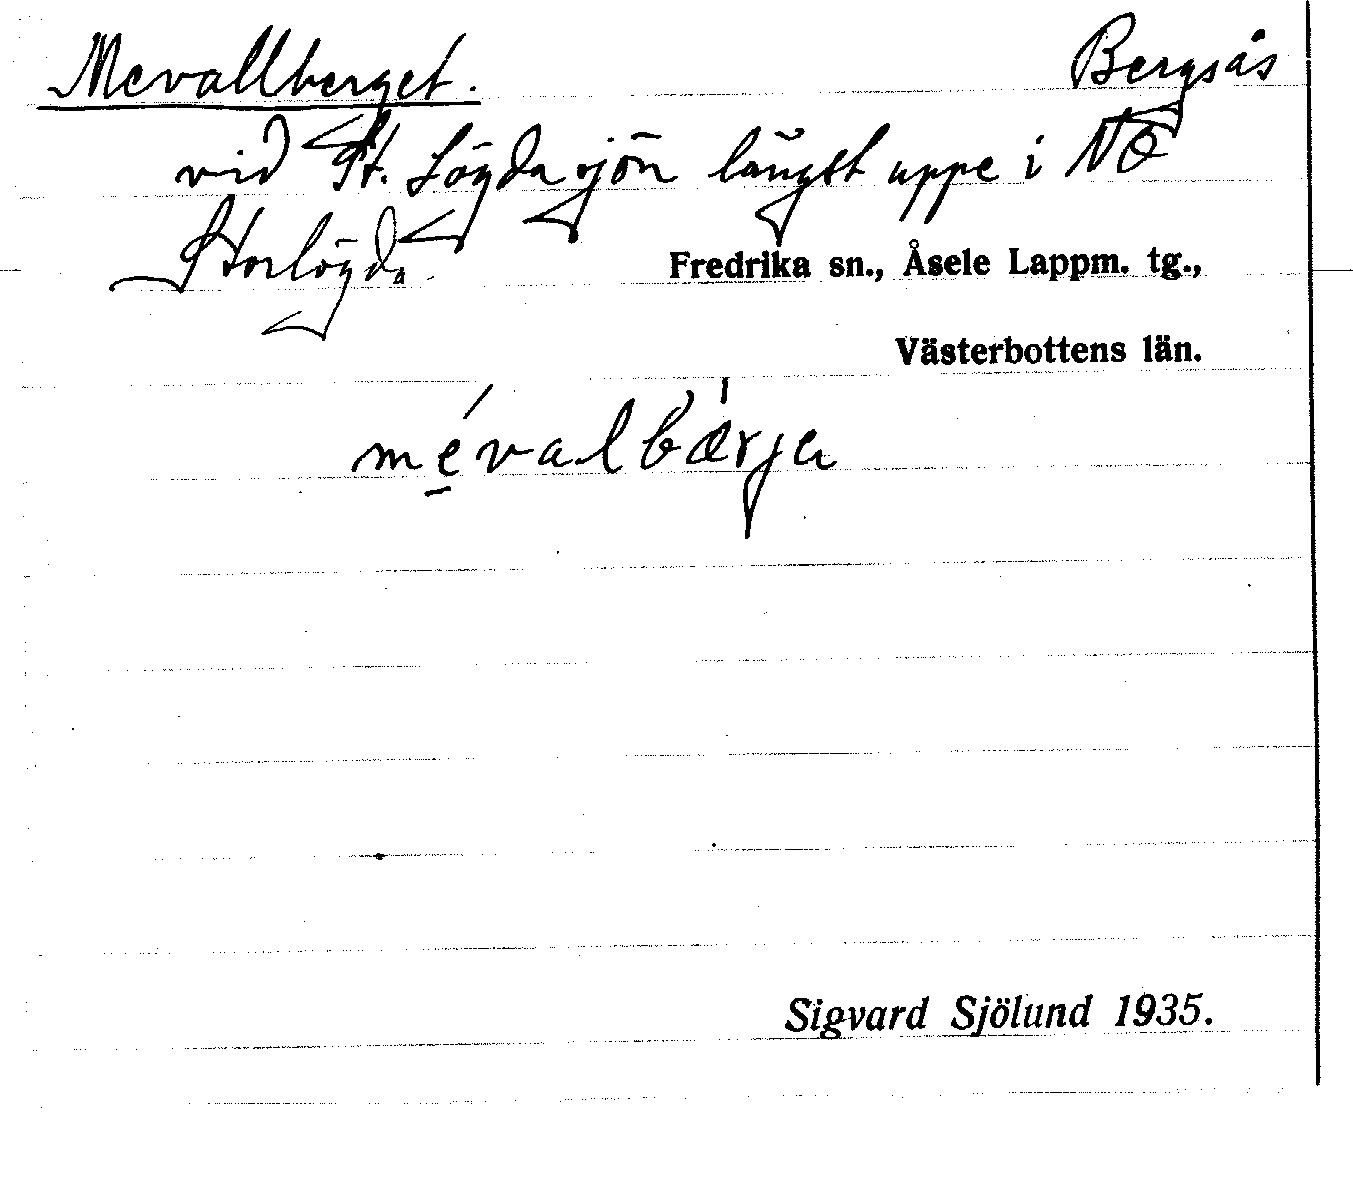 Mevallberget. Bergsås
vid St. Lögdasjön längst uppe i NÖ
Storlögda
Fredrika sn., Åsele Lappm. tg.,
Västerbottens län.
mévalbærja
Sigvard Sjölund 1935.